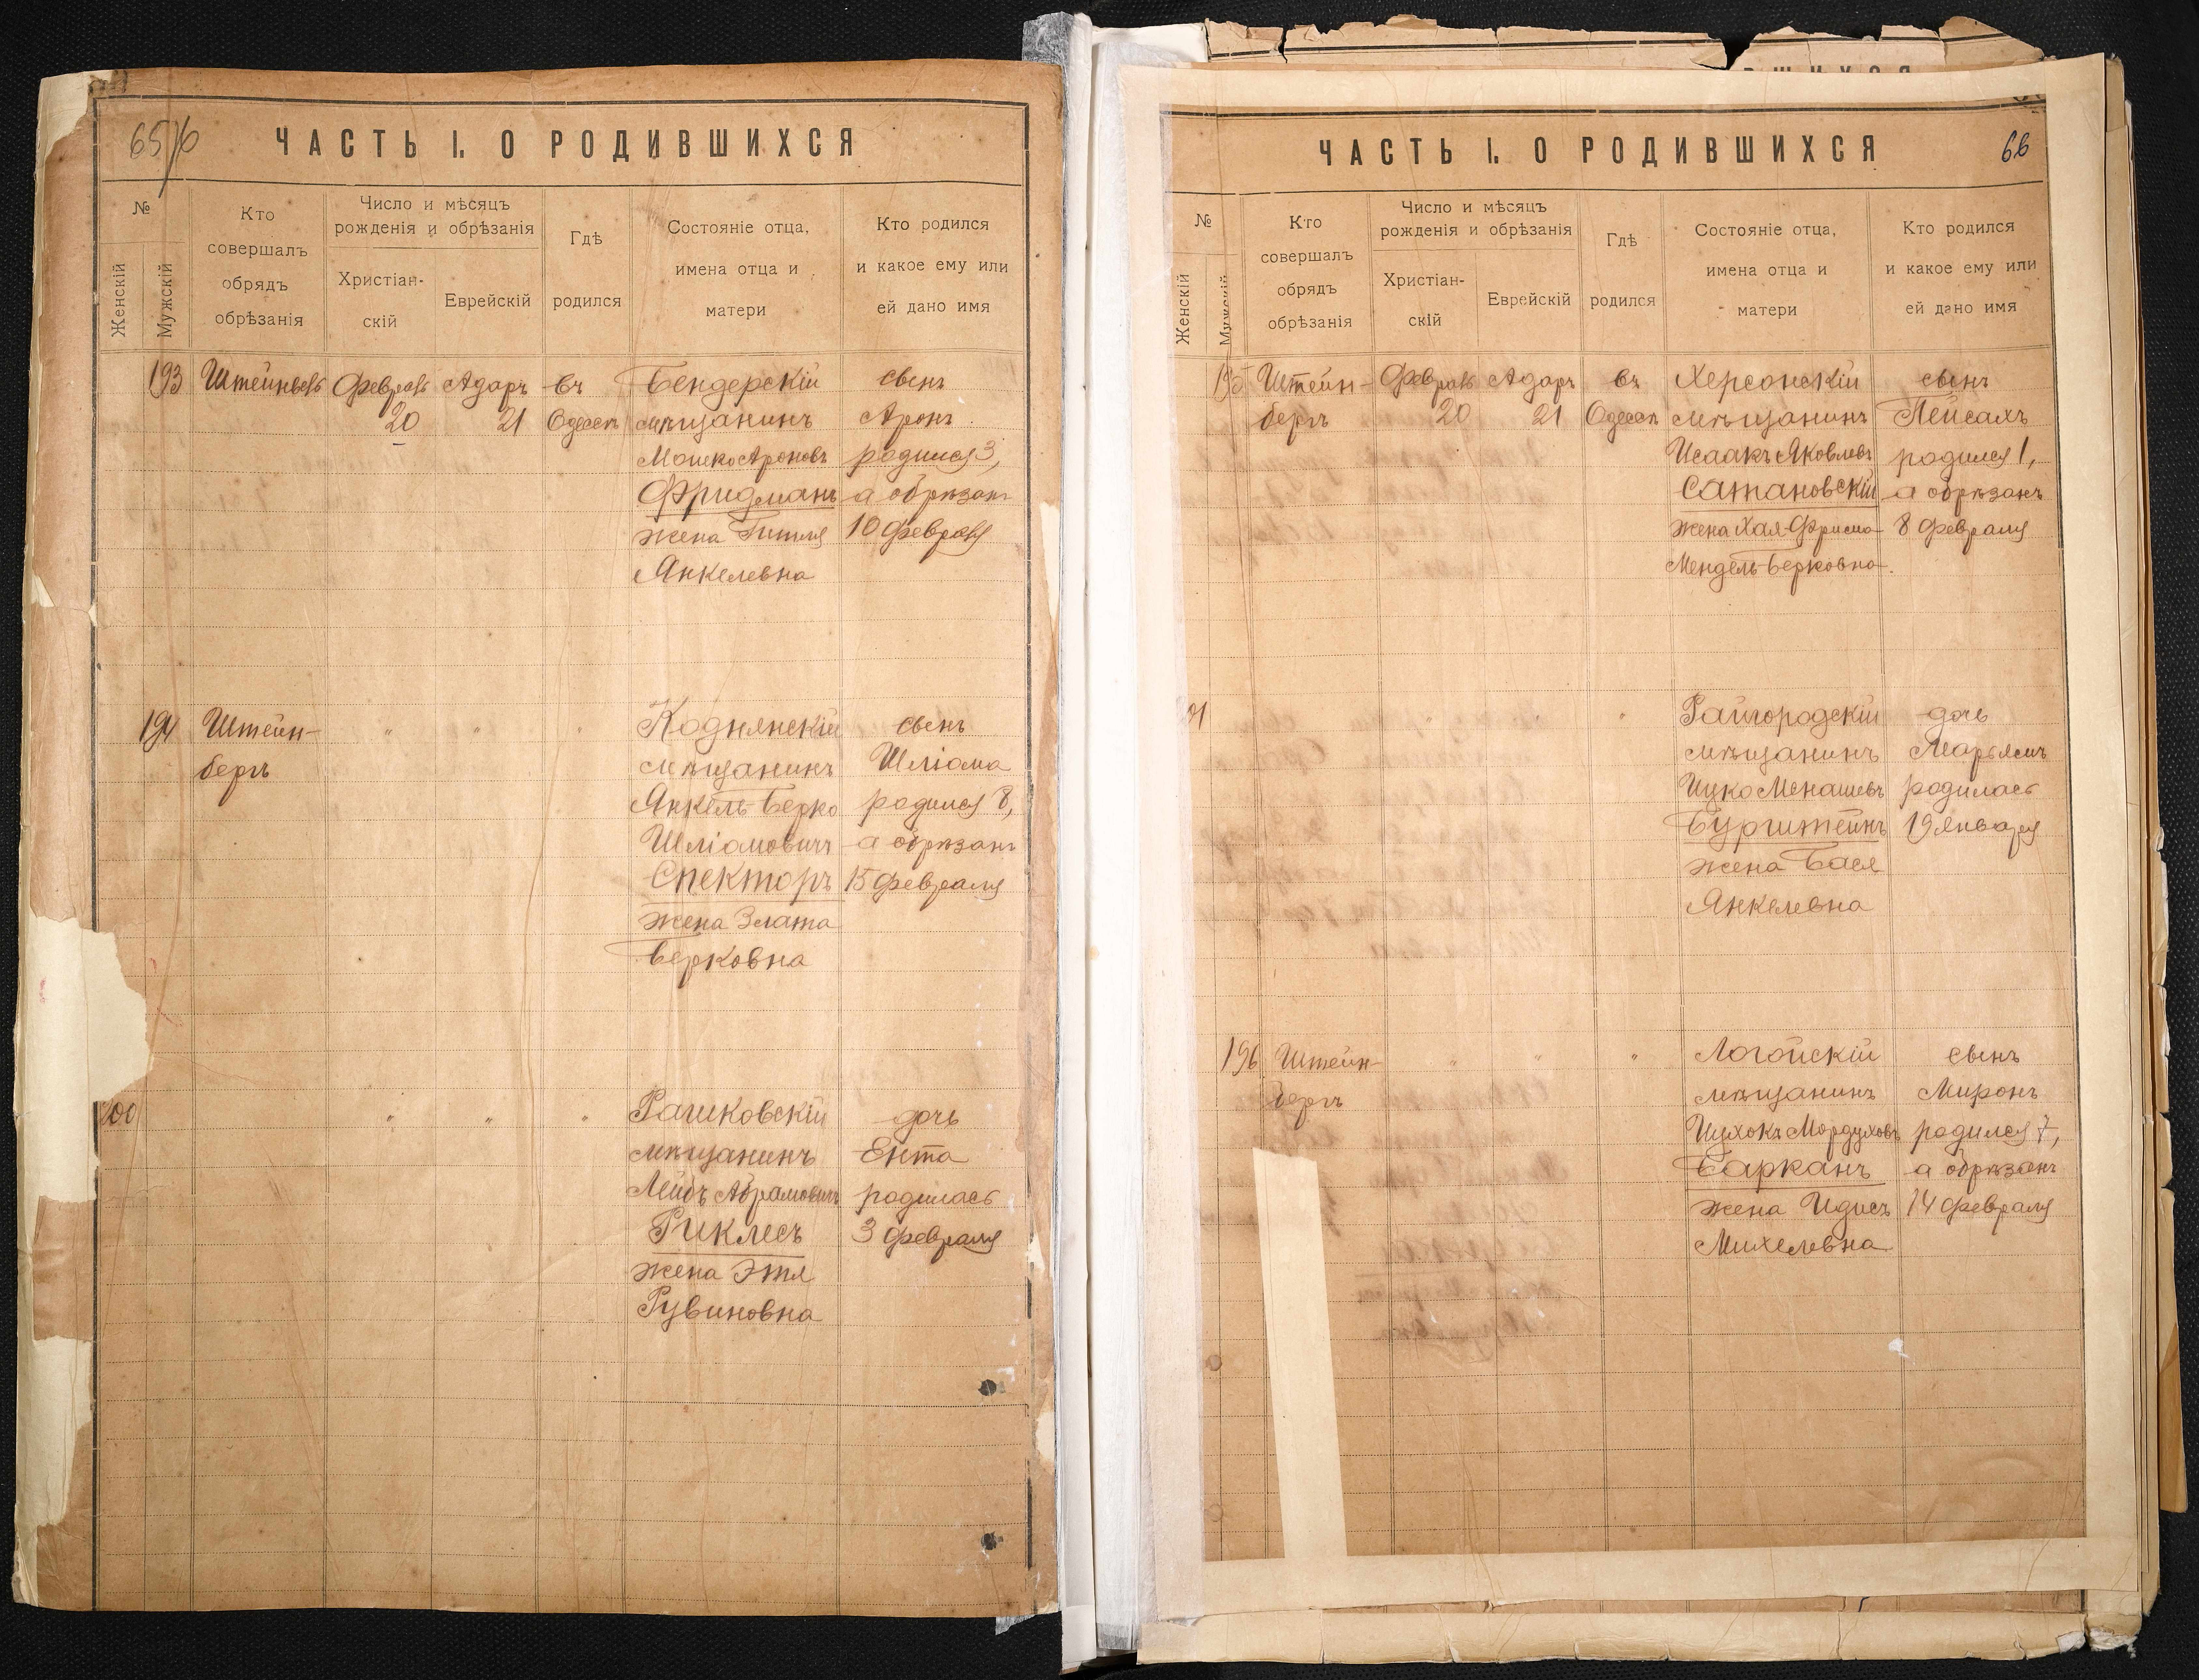 65
ЧАСТЬ I. О РОДИВШИХСЯ
№
Женскій
Мужскій
Кто
совершалъ
обрядъ
обрѣзанія
Число и мѣсяцъ
рожденія и обрѣзанія
Христіан-
скій
Еврейскій
Гдѣ
родился
Состояніе отца,
имена отца и
матери
Кто родился
и какое ему или
ей дано имя
193 Февраль Адаръ въ Бендерскій сынъ
20 21 Одессѣ мѣщанинъ Аронъ
Мошко Ароновъ родился 3,
Фридманъ а обрѣзанъ
жена Гитля 10 Февраля
Янкелевна
194 Штейн- " " " Коднянскій сынъ
бергъ мѣщанинъ Шліома
Янкель-Берко родился 8,
Шліомовичъ а обрѣзанъ
Спекторъ 15 Февраля
жена Злата
Берковна
200 " " " Рашковскій дочь
мѣщанинъ Ента
Лейбъ Абрамовичъ родилась
Риклесъ 3 Февраля
жена Этля
Рувиновна
ШИХСЯ
ЧАСТЬ I. О РОДИВШИХСЯ
66
№
Женскій
Мужскій
Кто
совершалъ
обрядъ
обрѣзанія
Число и мѣсяцъ
рожденія и обрѣзанія
Христіан-
скій
Еврейскій
Гдѣ
родился
Состояніе отца,
имена отца и
матери
Кто родился
и какое ему или
ей дано имя
195 Штейн- Февраль Адаръ въ Херсонскій сынъ
бергъ 20 21 Одессѣ мѣщанинъ Пейсахъ
Исаакъ Яковлевъ родился 1,
Сатановскій а обрѣзанъ
жена Хая-Фрима- 8 Февраля
Мендель-Берковна.
01 " " " Райгородскій дочь
мѣщанинъ Марьямъ
Ицко Менашевъ родилась
Бурштейнъ 19 Января
жена Бася
Янкелевна
196 Штейн- " " " Логойскій сынъ
бергъ мѣщанинъ Миронъ
Ицхокъ Мордуховъ родился 7,
Барканъ а обрѣзанъ
жена Идисъ 14 Февраля
Михелевна